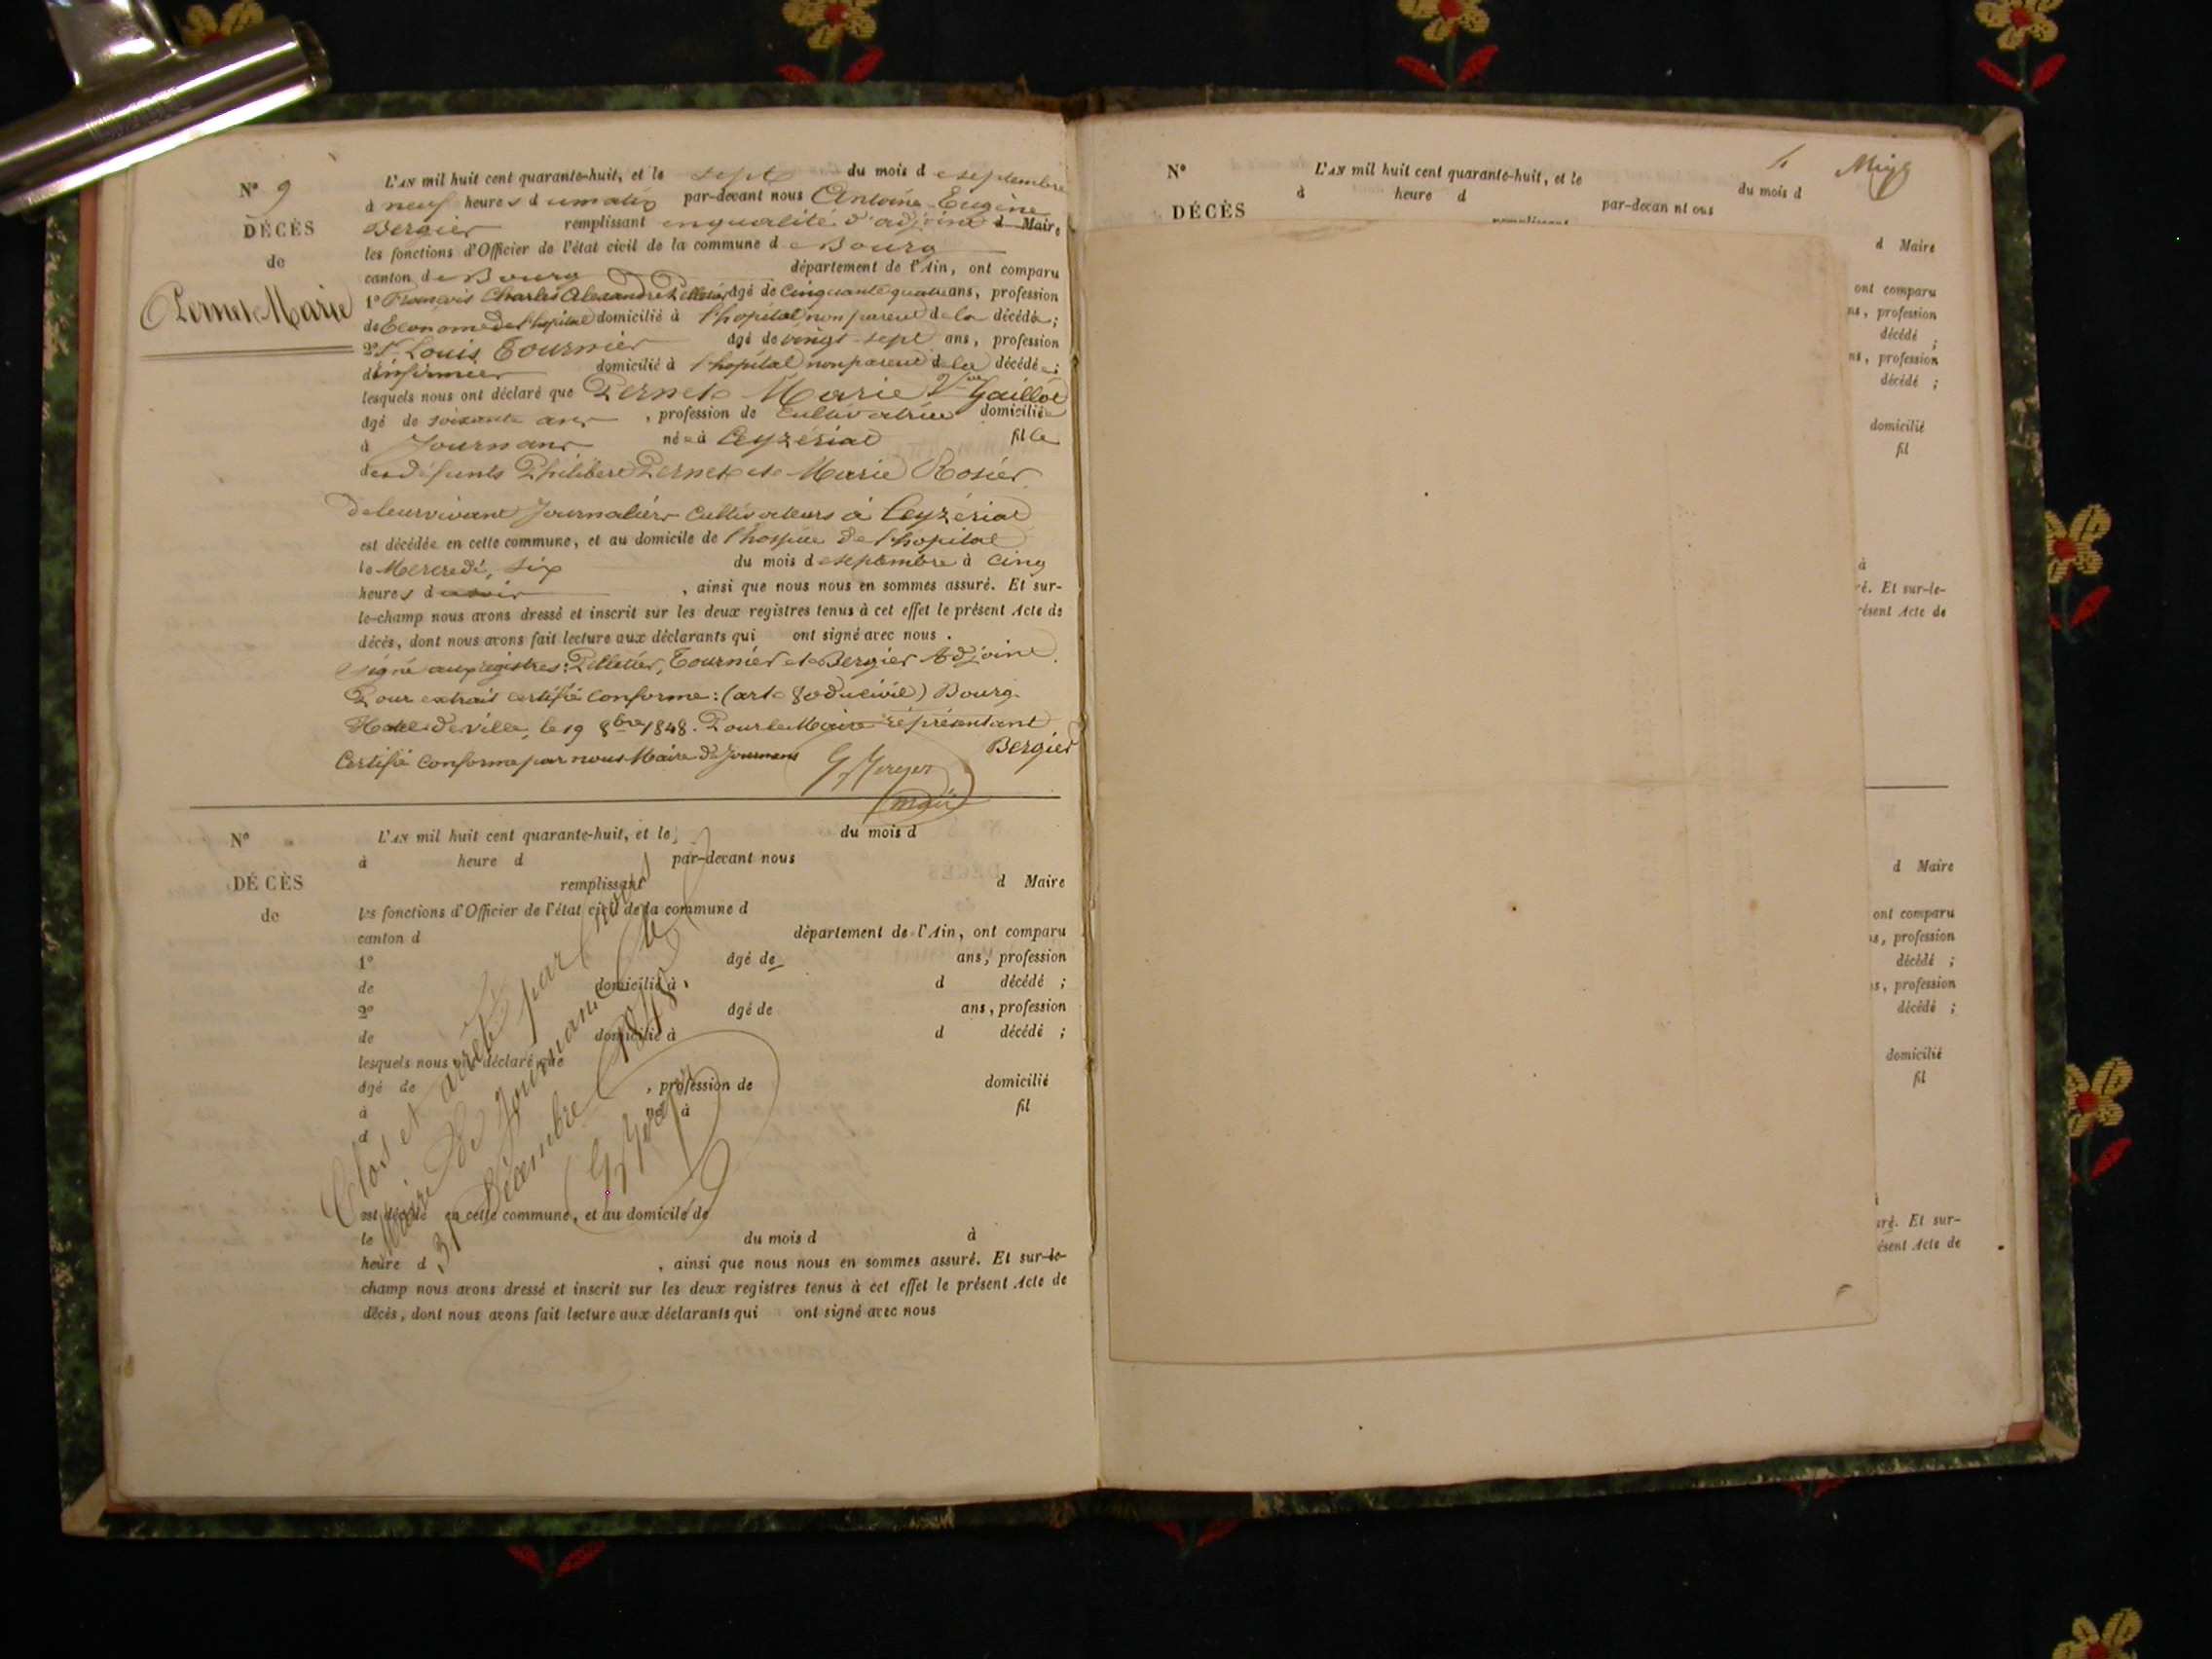 N° 9
DÉCÈS
de
Pernet Marie
L'AN mil huit cent quarante-huit, et le sept du mois de septembre
à neuf heures du matin par-devant nous Antoine Eugène
Bergier remplissant en qualité d'adjoint d Maire
les fonctions d'Officier de l'état civil de la commune de Bourg
canton de Bourg département de l'Ain, ont comparu
1° François Charles Alexandre Pelletier âgé de Cinquante quatre ans, profession
de Econome de l'hopital domicilié à l'hopital non parent de la décédée;
2° Sr Louis Tournier âgé de vingt-sept ans, profession
d'infirmier domicilié à l'hopital non parent de la décédée;
lesquels nous ont déclaré que Pernet Marie Vve Gaillot
âgé de soixante ans, profession de Cultivatrice domiciliée
à Journans née à Ceyzériat fille
des défunts Philibert Pernet et Marie Rosier
de leur vivant Journaliers Cultivateurs à Ceyzériat
est décédée en cette commune, et au domicile de l'hospice de l'hopital
le Mercredi, six du mois de septembre à cinq
heures du soir, ainsi que nous nous en sommes assuré. Et sur-
le-champ nous avons dressé et inscrit sur les deux registres tenus à cet effet le présent Acte de
décès, dont nous avons fait lecture aux déclarants qui ont signé avec nous.
signé aux registres: Pelletier, Tournier et Bergier Adjoint.
Pour extrait certifié conforme: (art. 80 du civil) Bourg.
Hotel de ville, le 19 8bre 1848. Pour le Maire représentant
Bergier
Certifié conforme par nous Maire de Journans
maire
N°
DÉCÈS
de
L'AN mil huit cent quarante-huit, et le du mois d
à heure d par-devant nous
remplissant d Maire
les fonctions d'Officier de l'état civil de la commune d
canton d département de l'Ain, ont comparu
1° âgé de ans, profession
de domicilié à d décédé ;
2° âgé de ans, profession
de domicilié à d décédé ;
lesquels nous ont déclaré que
âgé de , profession de domicilié
à né à fil
d
Clos et arrêté par nous
Maire de Journans le
31 Décembre 1848.
est décédé en cette commune, et au domicile de
le du mois d à
heure d , ainsi que nous nous en sommes assuré. Et sur-le-
champ nous avons dressé et inscrit sur les deux registres tenus à cet effet le présent Acte de
décès, dont nous avons fait lecture aux déclarants qui ont signé avec nous
N°
DÉCÈS
L'AN mil huit cent quarante-huit, et le du mois d
à heure d par-devan nt ous
d Maire
ont comparu
ns, profession
décédé ;
ns, profession
décédé ;
domicilié
fil
à
ré. Et sur-le-
résent Acte de
d Maire
ont comparu
ns, profession
décédé ;
ns, profession
décédé ;
domicilié
fil
uré. Et sur-
ésent Acte de